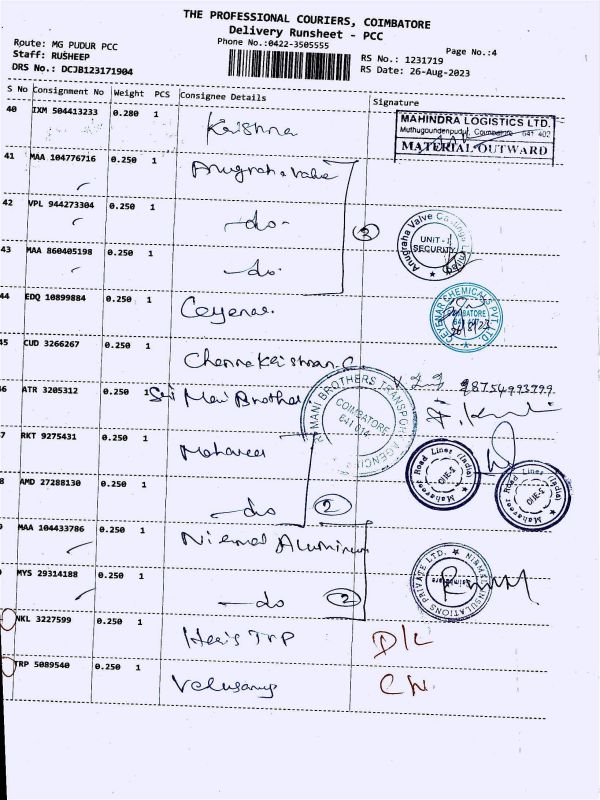 THE PROFESSIONAL COURIERS, COIMBATORE
Delivery Runsheet - PCC
Phone No.:0422-3505555
Page No.:4
Route: MG PUDUR PCC
Staff: RUSHEEP
DRS No.: DCJB123171904
RS No.: 1231719
RS Date: 26-Aug-2023
S No Consignment No Weight PCS Consignee Details Signature
40 IXM 504413233 0.280 1 Krishna
MAHINDRA LOGISTICS LTD.
Muthugoundenpudur, Coimbatore - 641 402
MATERIAL OUTWARD
41 MAA 104776716 0.250 1 Anugraha Valve
42 VPL 944273304 0.250 1 -do-
3
Anugraha Valve Castings Limited
UNIT-I
SECURITY
43 MAA 860405198 0.250 1 -do-
44 EDQ 10899884 0.250 1 Ceyenar
CEYENAR CHEMICALS PVT. LTD.
COIMBATORE
26/8/23
45 CUD 3266267 0.250 1 Chennakrishnan.C
46 ATR 3205312 0.250 1 Sri Mani Brothers
MANI BROTHERS TRANSPORT AGENCY
COIMBATORE
641 014
RKT 9275431 0.250 1 Mahaveer
Mahaveer Road Lines (India)
Mahaveer Road Lines (India)
AMD 27288130 0.250 1 -do
2
MAA 104433786 0.250 1 Nirmal Aluminium
MYS 29314188 0.250 1 -do
2
NIRMAL INSULATIONS PRIVATE LTD.
NKL 3227599 0.250 1 Heris TRP D/L
TRP 5089540 0.250 1 Velusamy